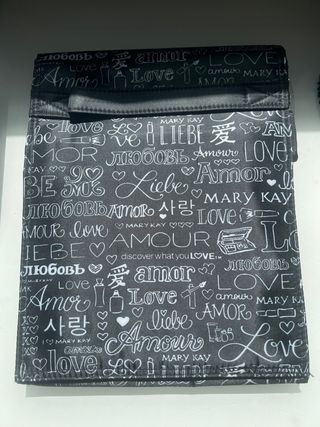 ЛЮБОВЬ 爱 amor LOVE
Amor LOVE amour MARY KAY
MARY KAY LOVE
amour Love LIEBE 爱
AMOUR любовь Amour LOVE
LIEBE Liebe Amor
ЛЮБОВЬ AMOR 사랑 MARY KAY
LIEBE amour AMOUR
discover what you LOVE™
ЛЮБОВЬ 爱 amor любовь
Amor Love amour LOVE
사랑 liebe AMOR
I ♡ MARY KAY Amour Love
love MARY KAY